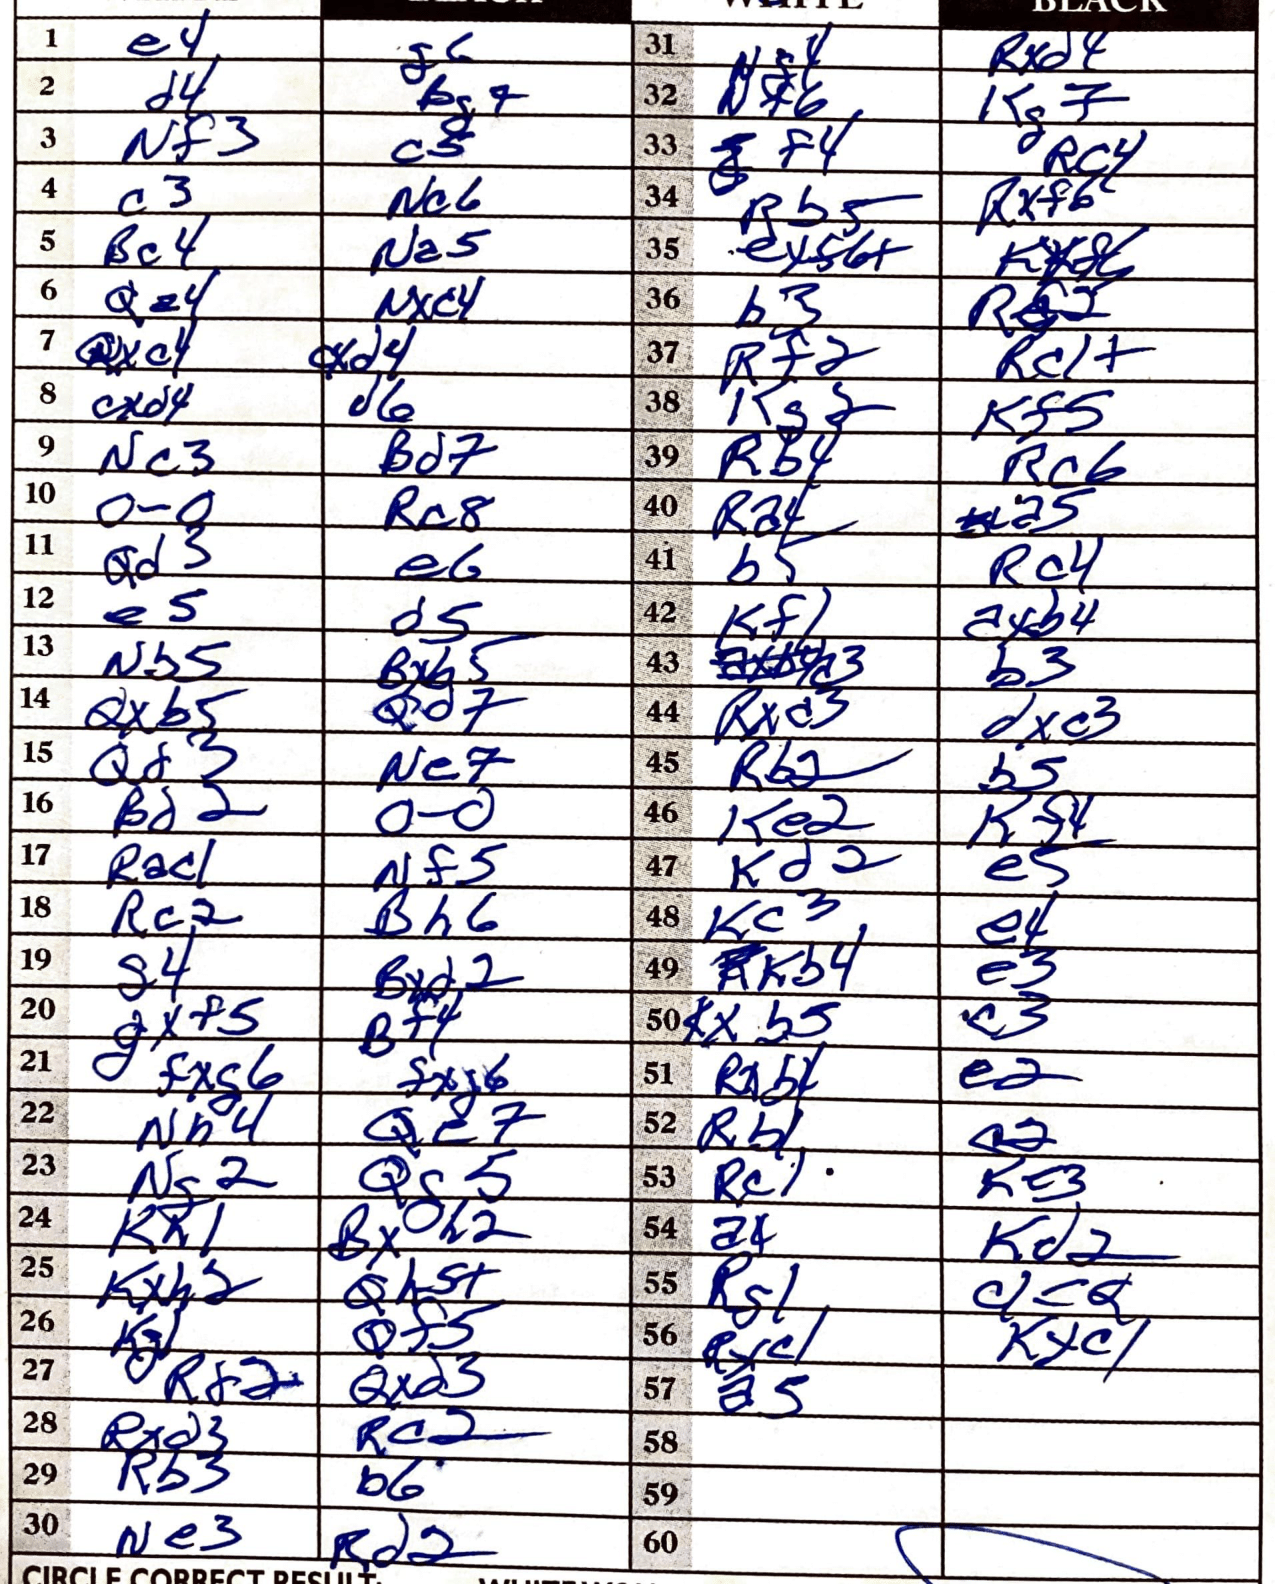 WHITE BLACK
1 e4 g6
2 d4 Bg7
3 Nf3 c5
4 c3 Nc6
5 Bc4 Na5
6 Qa4 Nxc4
7 Qxc4 cxd4
8 cxd4 d6
9 Nc3 Bd7
10 0-0 Rc8
11 Qd3 e6
12 e5 d5
13 Nb5 Bxb5
14 Qxb5 Qd7
15 Qd3 Ne7
16 Bd2 0-0
17 Rac1 Nf5
18 Rc2 Bh6
19 g4 Bxd2
20 gxf5 Bf4
21 fxg6 fxg6
22 Nh4 Qe7
23 Ng2 Qg5
24 Kh1 Bxh2
25 Kxh2 Qh5+
26 Kg1 Qf5
27 Rd2 Qxd3
28 Rxd3 Rc2
29 Rb3 b6
30 Ne3 Rd2
31 Ng4 Rxd4
32 Nf6 Kg7
33 f4 Rc4
34 Rb5 Rxf6
35 exf6+
36 b3
37 Rf2 Rc1+
38 Kg2 Kf5
39 Rb4 Rc6
40 Ra4 a5
41 b5 Rc4
42 Kf1 axb4
43 b3
44 Rxc3 dxc3
45 Rb2 b5
46 Ke2 Kf4
47 Kd2 e5
48 Kc3 e4
49 Kb4 e3
50 Kxb5 c3
51 Rxb4 e2
52 Rb1 c2
53 Rc1 Ke3
54 a4 Kd2
55 Rg1 c1=Q
56 Rxc1 Kxc1
57 a5
58
59
60
CIRCLE CORRECT RESULT: